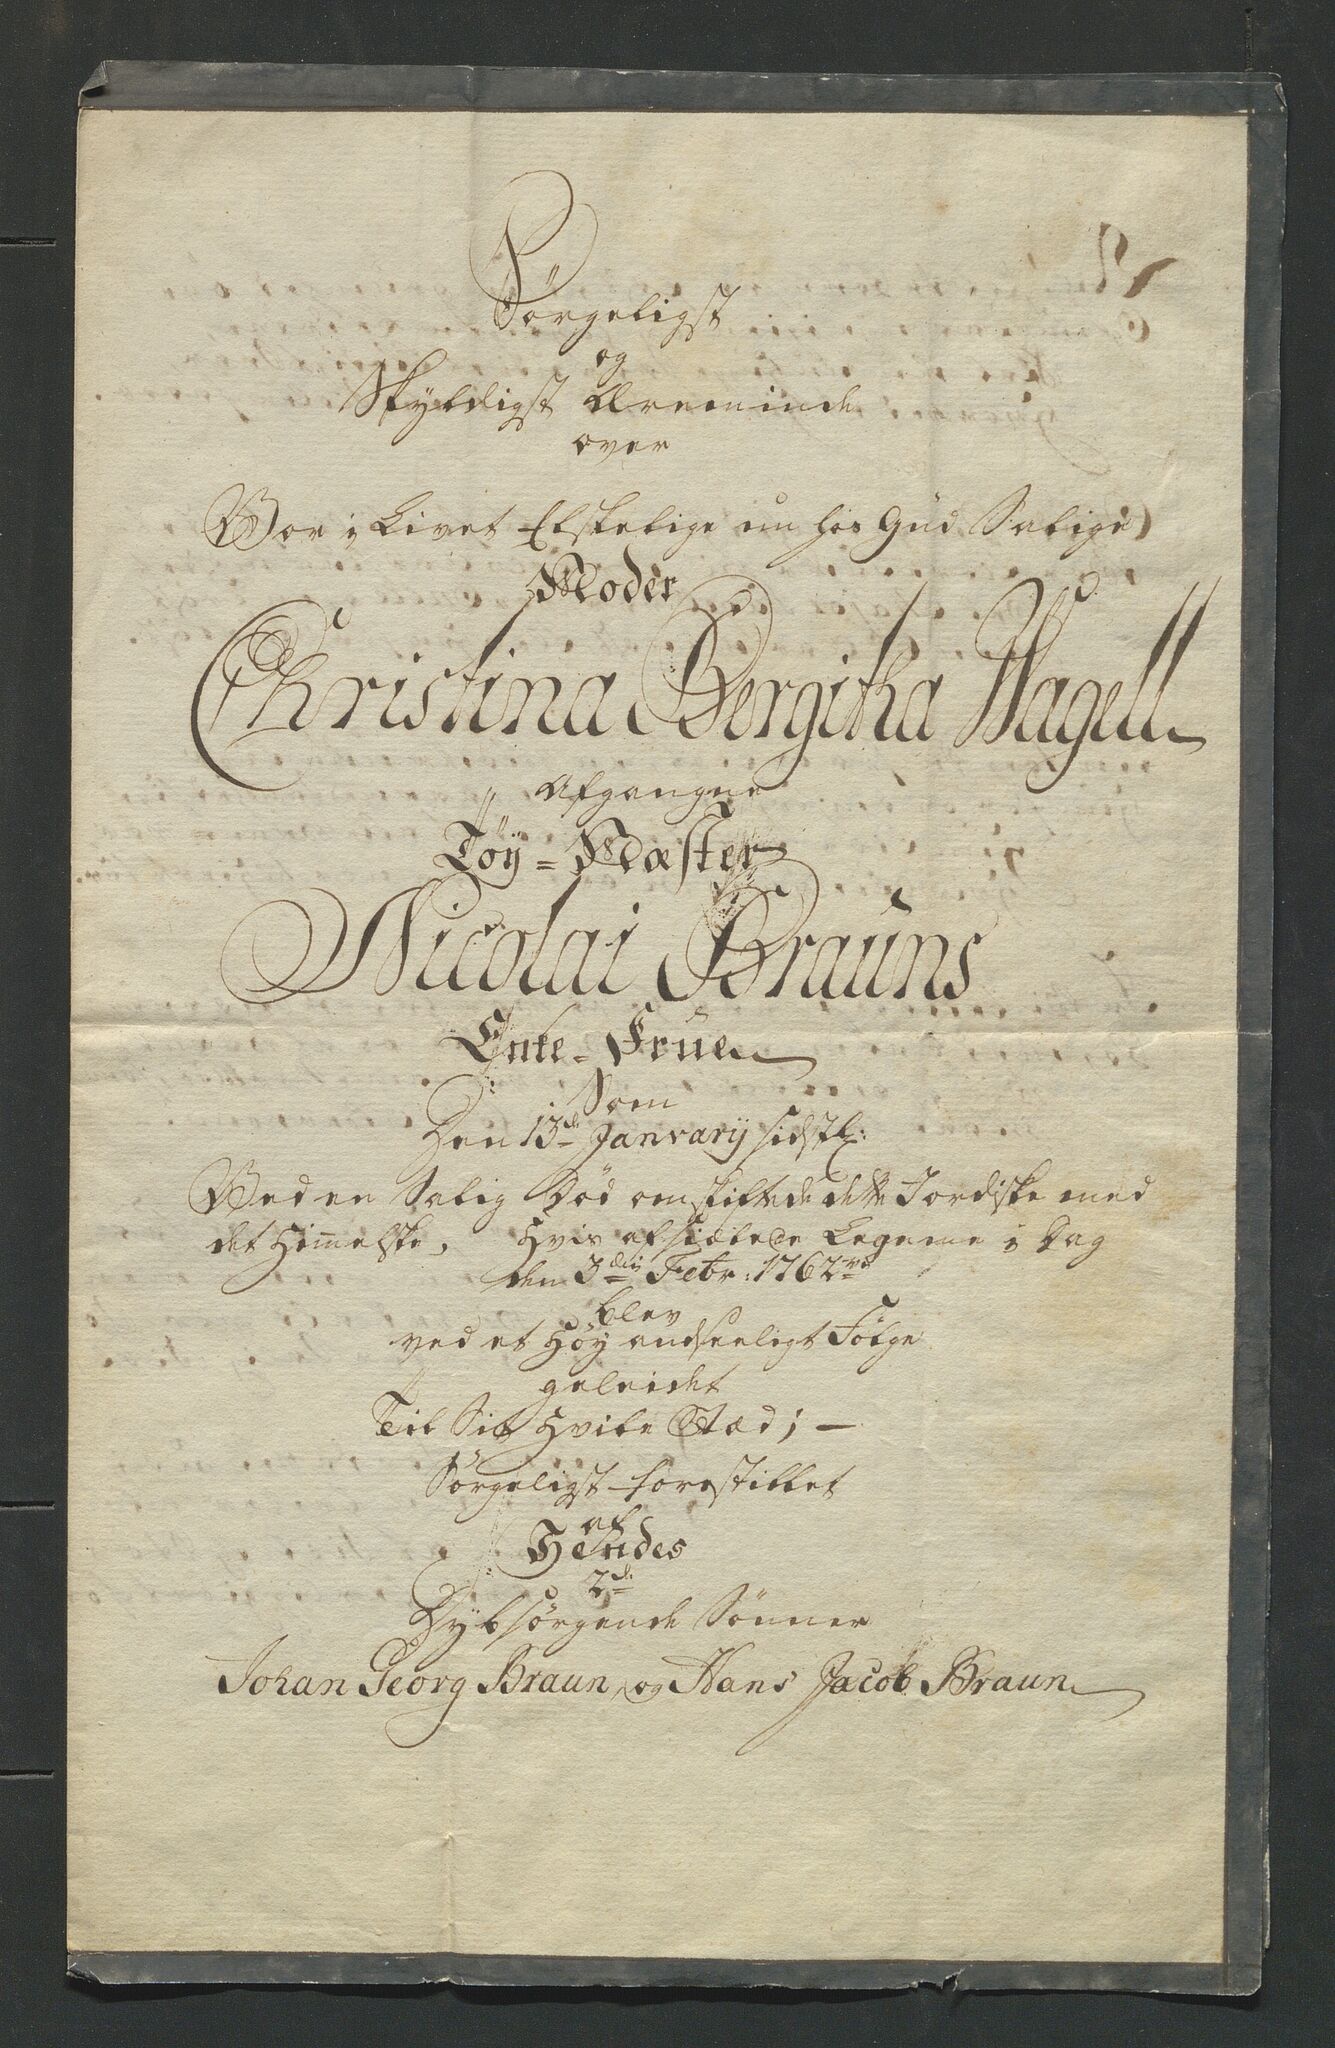 Sörgeligst
og
Skyldigst Æreminde
over
Vor i Livet Elskelige nu hos Gud Salige
Moder
Christina Bergitha Wagell
Afgangne
Töy-Mæster
Nicolai Brauns
Enke-Frue
Som
Den 13de Janvarij sidstl:
Ved en Salig Död omskiftede dette Jordiske med
det Himelske, Hvis afsiælede Legeme i Dag
den 3die Febr: 1762
blev
ved et Höy andseeligt Fölge
geleidet
Til Sit Hvile Stæd; —
Sörgeligst forestillet
af
Hendes
2de
Dybsörgende Sönner
Johan Georg Braun, og Hans Jacob Braun